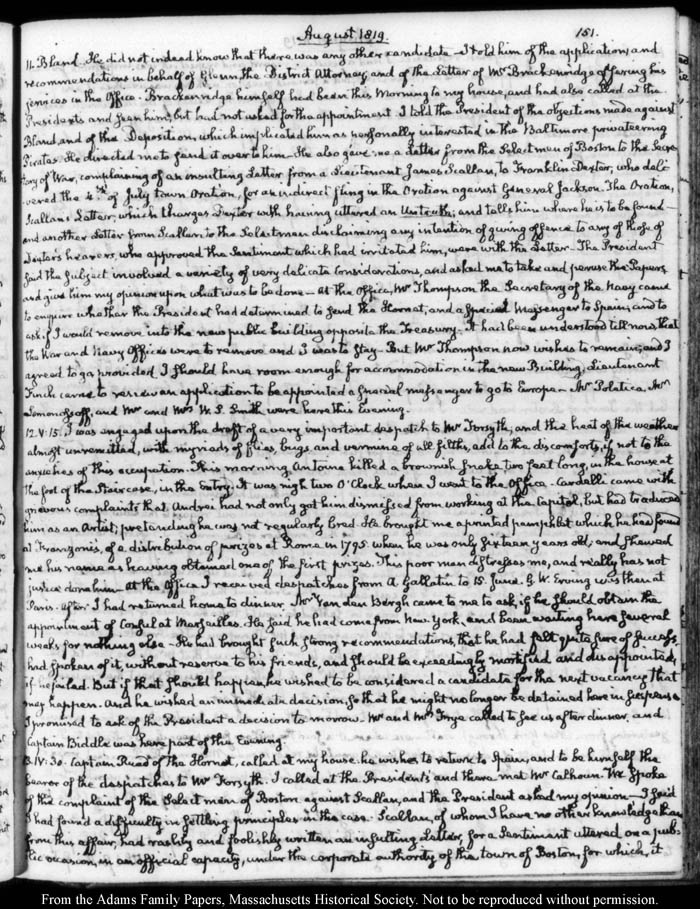 August 1819.
151.
11. Bland. He did not indeed know that there was any other candidate. I told him of the applications and
recommendations in behalf of Glenn, the District Attorney, and of the Letter of Mr Brackenridge offering his
services in the Office. Brackenridge himself had been this Morning to my house, and had also called at the
Presidents and seen him, but had not asked for the appointment. I told the President of the objections made against
Bland, and of the Deposition, which implicated him as personally interested in the Baltimore privateering
Pirates. He directed me to send it over to him. He also gave me a Letter from the Selectmen of Boston to the Secre-
tary of War, complaining of an insulting Letter from a Lieutenant James Scallan, to Franklin Dexter, who deli-
vered the 4th of July town Oration, for an indirect fling in the Oration against General Jackson. The Oration,
Scallan's Letter, which charges Dexter with having uttered an Untruth; and tells him where he is to be found
and another Letter from Scallan, to the Selectmen disclaiming any intention of giving offence to any of those of
Dexter's hearers, who approved the Sentiment which had irritated him, were with the Letter. The President
said the subject involved a variety of very delicate considerations, and asked me to take and peruse the Papers
and give him my opinion upon what was to be done. At the Office, Mr Thompson the Secretary of the Navy came
to enquire whether the President had determined to send the Hornet, and a special Messenger to Spain; and to
ask if I would remove into the new public building opposite the Treasury. It had been understood till now, that
the War and Navy Offices were to remove and I was to stay. But Mr Thompson now wishes to remain; and I
agreed to go, provided I should have room enough for accommodation in the new Building. Lieutenant
Finch came to renew an application to be appointed a special messenger to go to Europe. Mr Poletica, Mr
and Mr and Mrs W. S. Smith were here this Evening.
12. V:15. I was engaged upon the draft of a very important despatch to Mr Forsyth; and the heat of the weather
almost unremitted, with myriads of flies, bugs and vermine of all filths, add to the discomforts, if not to the
anxieties of this occupation. This morning, Antoine killed a brownish snake two feet long, in the house at
the foot of the Staircase, in the Entry. It was nigh two O'Clock when I went to the Office. Cardelli came with
grievous complaints that Andrei had not only got him dismissed from working at the Capitol, but had traduced
him as an Artist; pretending he was not regularly bred. He brought me a printed pamphlet which he had found
at Franzoni's, of a distribution of prizes at Rome in 1795 when he was only sixteen years old, and shewed
me his name as having obtained one of the first prizes. This poor man distresses me, and really has not
justice done him. At the Office I received despatches from A. Gallatin to 15. June. G. W. Erving was then at
Paris. After I had returned home to dinner, Mr Van den Bergh came to me to ask, if he should obtain the
appointment of Consul at Marseilles. He said he had come from New York, and been waiting here several
weeks for nothing else. He had brought such strong recommendations, that he had felt quite sure of success,
had spoken of it, without reserve to his friends, and should be exceedingly mortified and disappointed,
if he failed. But if that should happen, he wished to be considered a candidate for the next vacancy that
may happen. And he wished an immediate decision, so that he might no longer be detained here in suspense.
I promised to ask of the President a decision to morrow. Mr and Mrs Frye called to see us after dinner, and
Captain Biddle was here part of the Evening.
13. IV:30. Captain Read of the Hornet, called at my house. he wishes to return to Spain, and to be himself the
bearer of the despatches to Mr Forsyth. I called at the Presidents and there met Mr Calhoun. We spoke
of the complaint of the Select men of Boston against Scallan, and the President asked my opinion. I said
I had found a difficulty in settling principles in the case. Scallan, of whom I have no other knowledge than
from this affair, had rashly and foolishly written an insulting Letter, for a Sentiment uttered on a pub-
lic occasion, in an official capacity, under the corporate authority of the town of Boston, for which, it
From the Adams Family Papers, Massachusetts Historical Society. Not to be reproduced without permission.